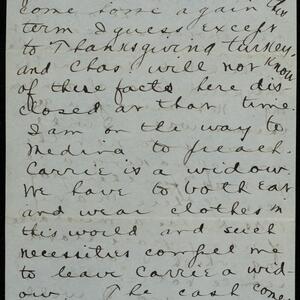 come home again this
term I guess except
to Thanksgiving turkey,
and Chas. will not know
of these facts here dis-
closed at that time.
I am on the way to
Medina to preach.
Carrie is a widow.
We have to both eat
and wear clothes in
this world and such
necessities compel me
to leave Carrie a wid-
ow. The cash comes